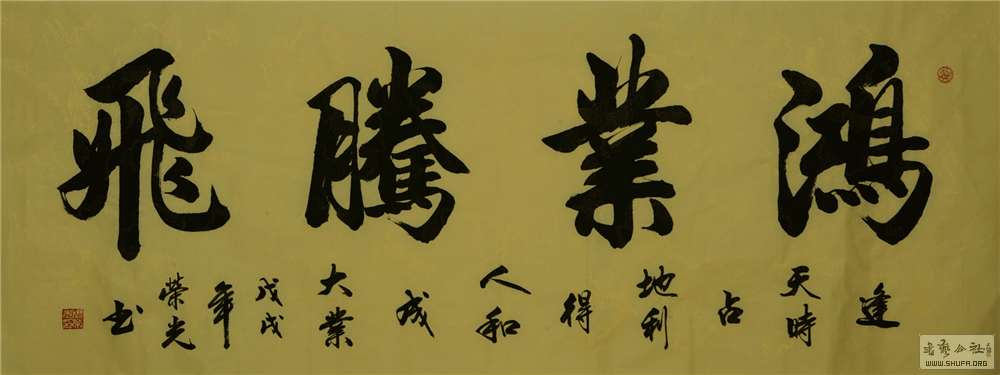 鴻業騰飛
逢天時占地利得人和成大業戊戌年榮光书
WWW.SHUFA.ORG